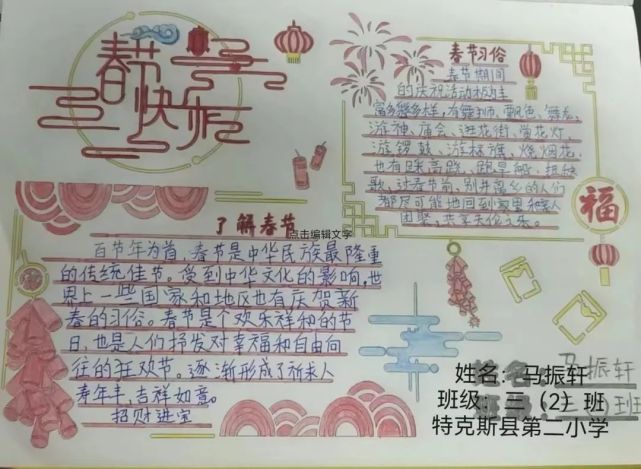 春节快乐
春节习俗
春节期间
的庆祝活动极其
富多彩多样，有舞狮、飘色、舞龙、
游神、庙会、逛花街、赏花灯、
游锣鼓、游标旗、烧烟花、
也有踩高跷、跑旱船、扭秧
歌，过春节前，别井离乡的人们
都尽可能地回到家里和家人
团聚，共享天伦之乐。
福
了解春节
点击编辑文字
百节年为首，春节是中华民族最隆重
的传统佳节。受到中华文化的影响，世
界上一些国家和地区也有庆贺新
春的习俗。春节是个欢乐祥和的节
日，也是人们抒发对幸福和自由向
往的狂欢节。逐渐形成了祈求人
寿年丰，吉祥如意。
招财进宝
马振轩
班
姓名：马振轩
班级：三（2）班
特克斯县第二小学